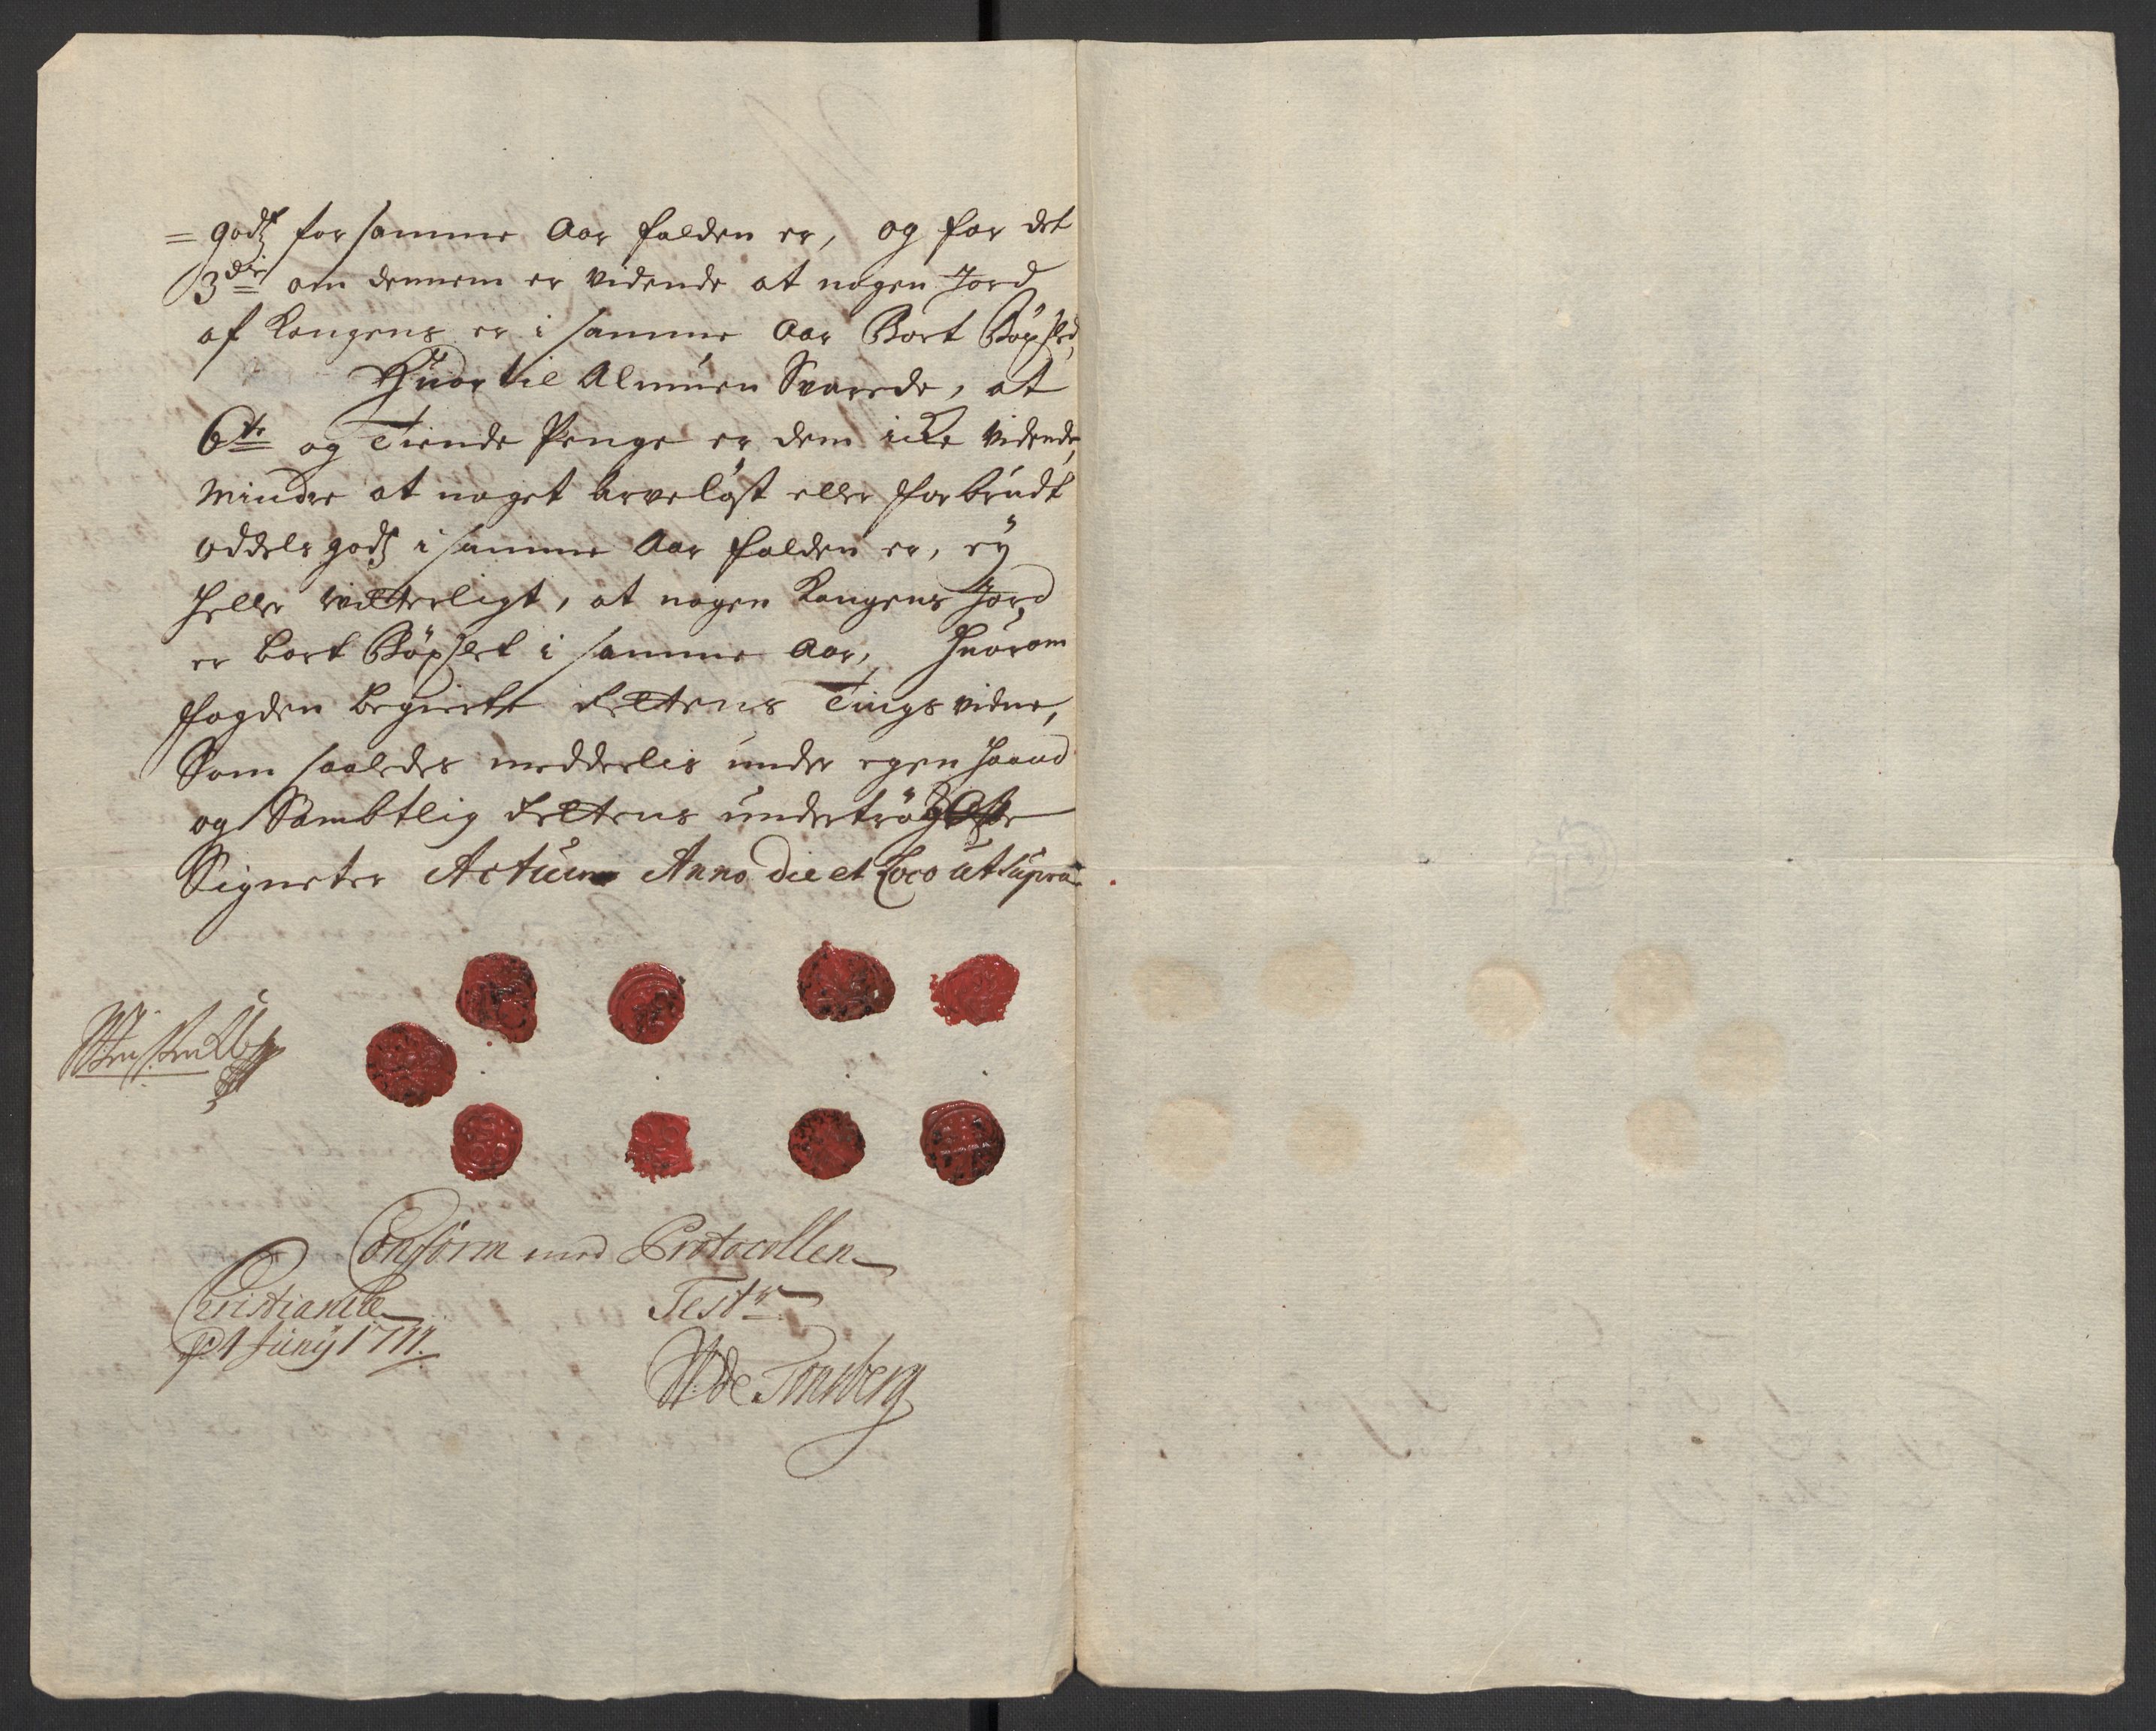 = godtz for samme Aar falden er, og for det
3die om dennem er vidende at nogen Jord
af Kongens er i samme Aar Bort Böxled,
Huortil Almuen Svarede, at
6te og Tiende Penge er dem icke vidende,
Mindre at noget arveløst eller forbrudt
Oddels godtz i samme Aar falden er, eÿ
heller vitterligt, at nogen Kongens Jord
er bort Böxlet i samme Aar, Huorom
fogden begierte Rettens Tings vidne,
Som saaledes meddeelis under egen haand
og Sambtlig Rettens undertrögte
Signeter Actum Anno die et Loco ut supra
Conform med Protocollen
Christiania Test:
p 4 Junÿ 1711. W de Tonsberg